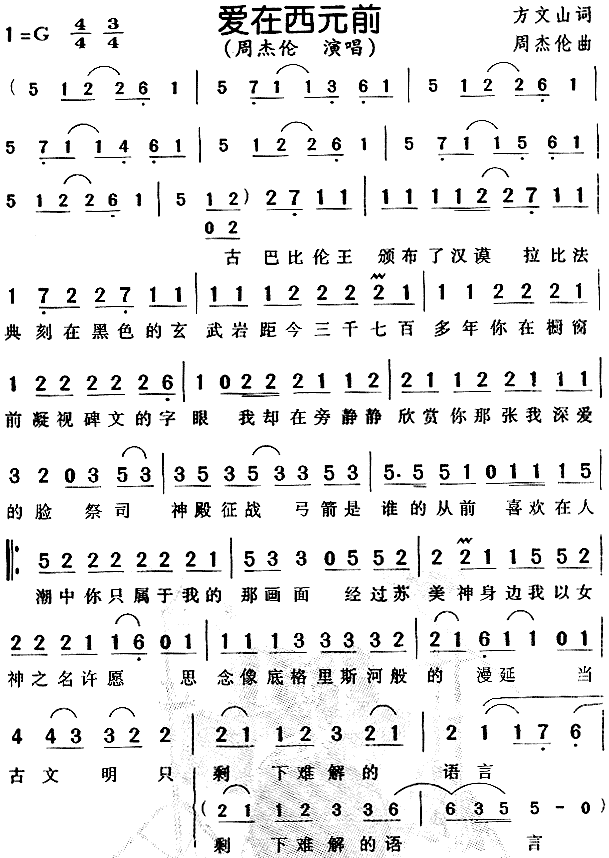 爱在西元前
1=G 4/4 3/4
(周杰伦 演唱)
方文山词
周杰伦曲
( 5 1 2 2 2 6 1 | 5 7 1 1 3 6 1 | 5 1 2 2 2 6 1 |
5 7 1 1 4 6 1 | 5 1 2 2 2 6 1 | 5 7 1 1 5 6 1 |
5 1 2 2 6 1 | 5 1 2 ) 2 7 1 1 | 1 1 1 1 2 2 7 1 |
0 2
古 巴比伦王 颁布了汉谟 拉比法
1 7 2 2 7 1 1 | 1 1 1 2 2 2 2 1 | 1 1 1 2 2 2 2 |
典刻在黑色的玄 武岩距今三千七百 多年你在橱窗
1 2 2 2 2 2 6 | 1 0 2 2 2 1 1 2 | 2 1 1 1 2 2 1 1 |
前凝视碑文的字 眼 我却在旁静静 欣赏你那张我深爱
3 2 0 3 5 3 | 3 5 3 5 3 5 3 | 5· 5 5 1 0 1 1 1 5 |
的脸 祭司 神殿征战 弓箭是 谁的从前 喜欢在人
5 2 2 2 2 2 2 1 | 5 3 3 0 5 5 2 | 2 2 1 1 5 5 2 |
潮中你只属于我的 那画面 经过苏 美神身边我以女
2 2 2 1 6 0 1 | 1 1 1 3 3 3 3 2 | 2 1 6 1 0 1 |
神之名许愿 思 念像底格里斯河般 的 漫延 当
4 4 3 3 2 2 | 2 1 1 2 3 2 1 | 2 1 1 7 6 |
古文 明只 剩 下难解的 语言
( 2 1 1 2 3 3 6 | 6 3 5 5 - 0 )
剩 下难解的语 言